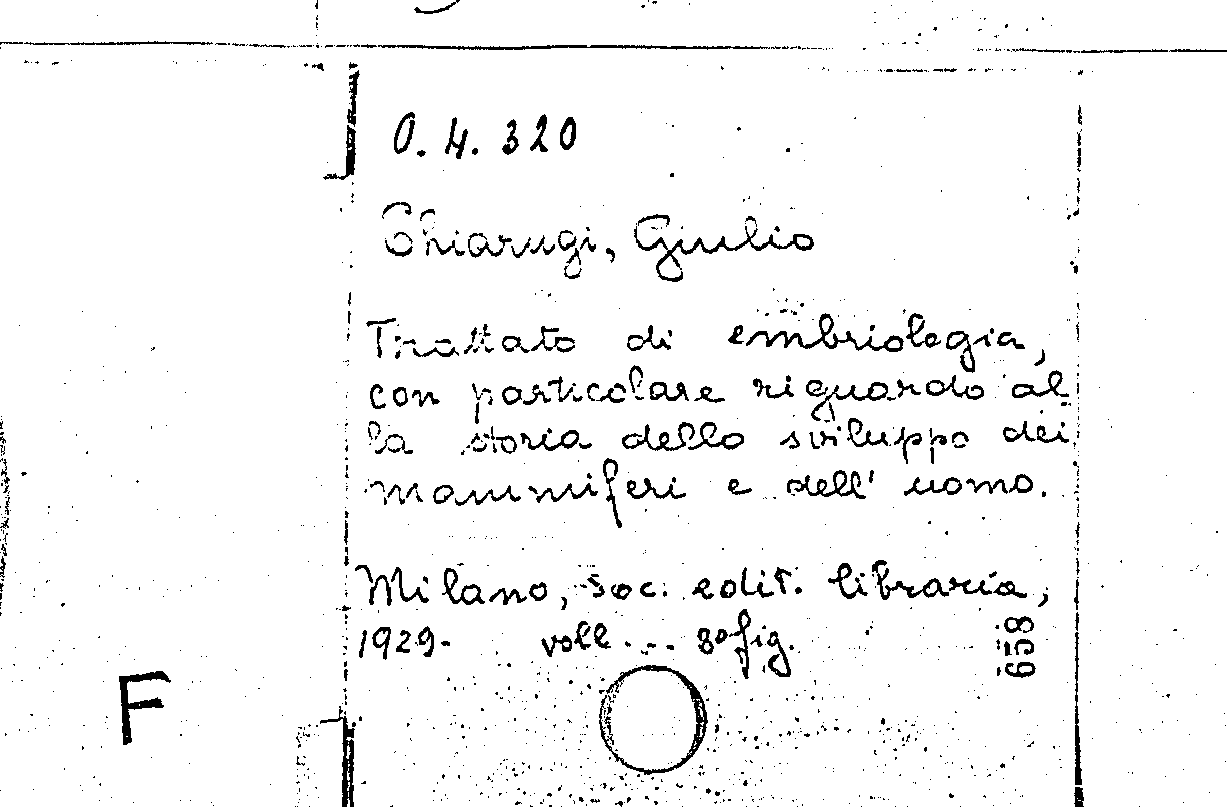 O.4.320
Chiarugi, Giulio
Trattato di embriologia,
con particolare riguardo al
la storia dello sviluppo dei
mammiferi e dell' uomo.
Milano, soc. edit. libraria,
1929- voll... 8º fig.
658
F